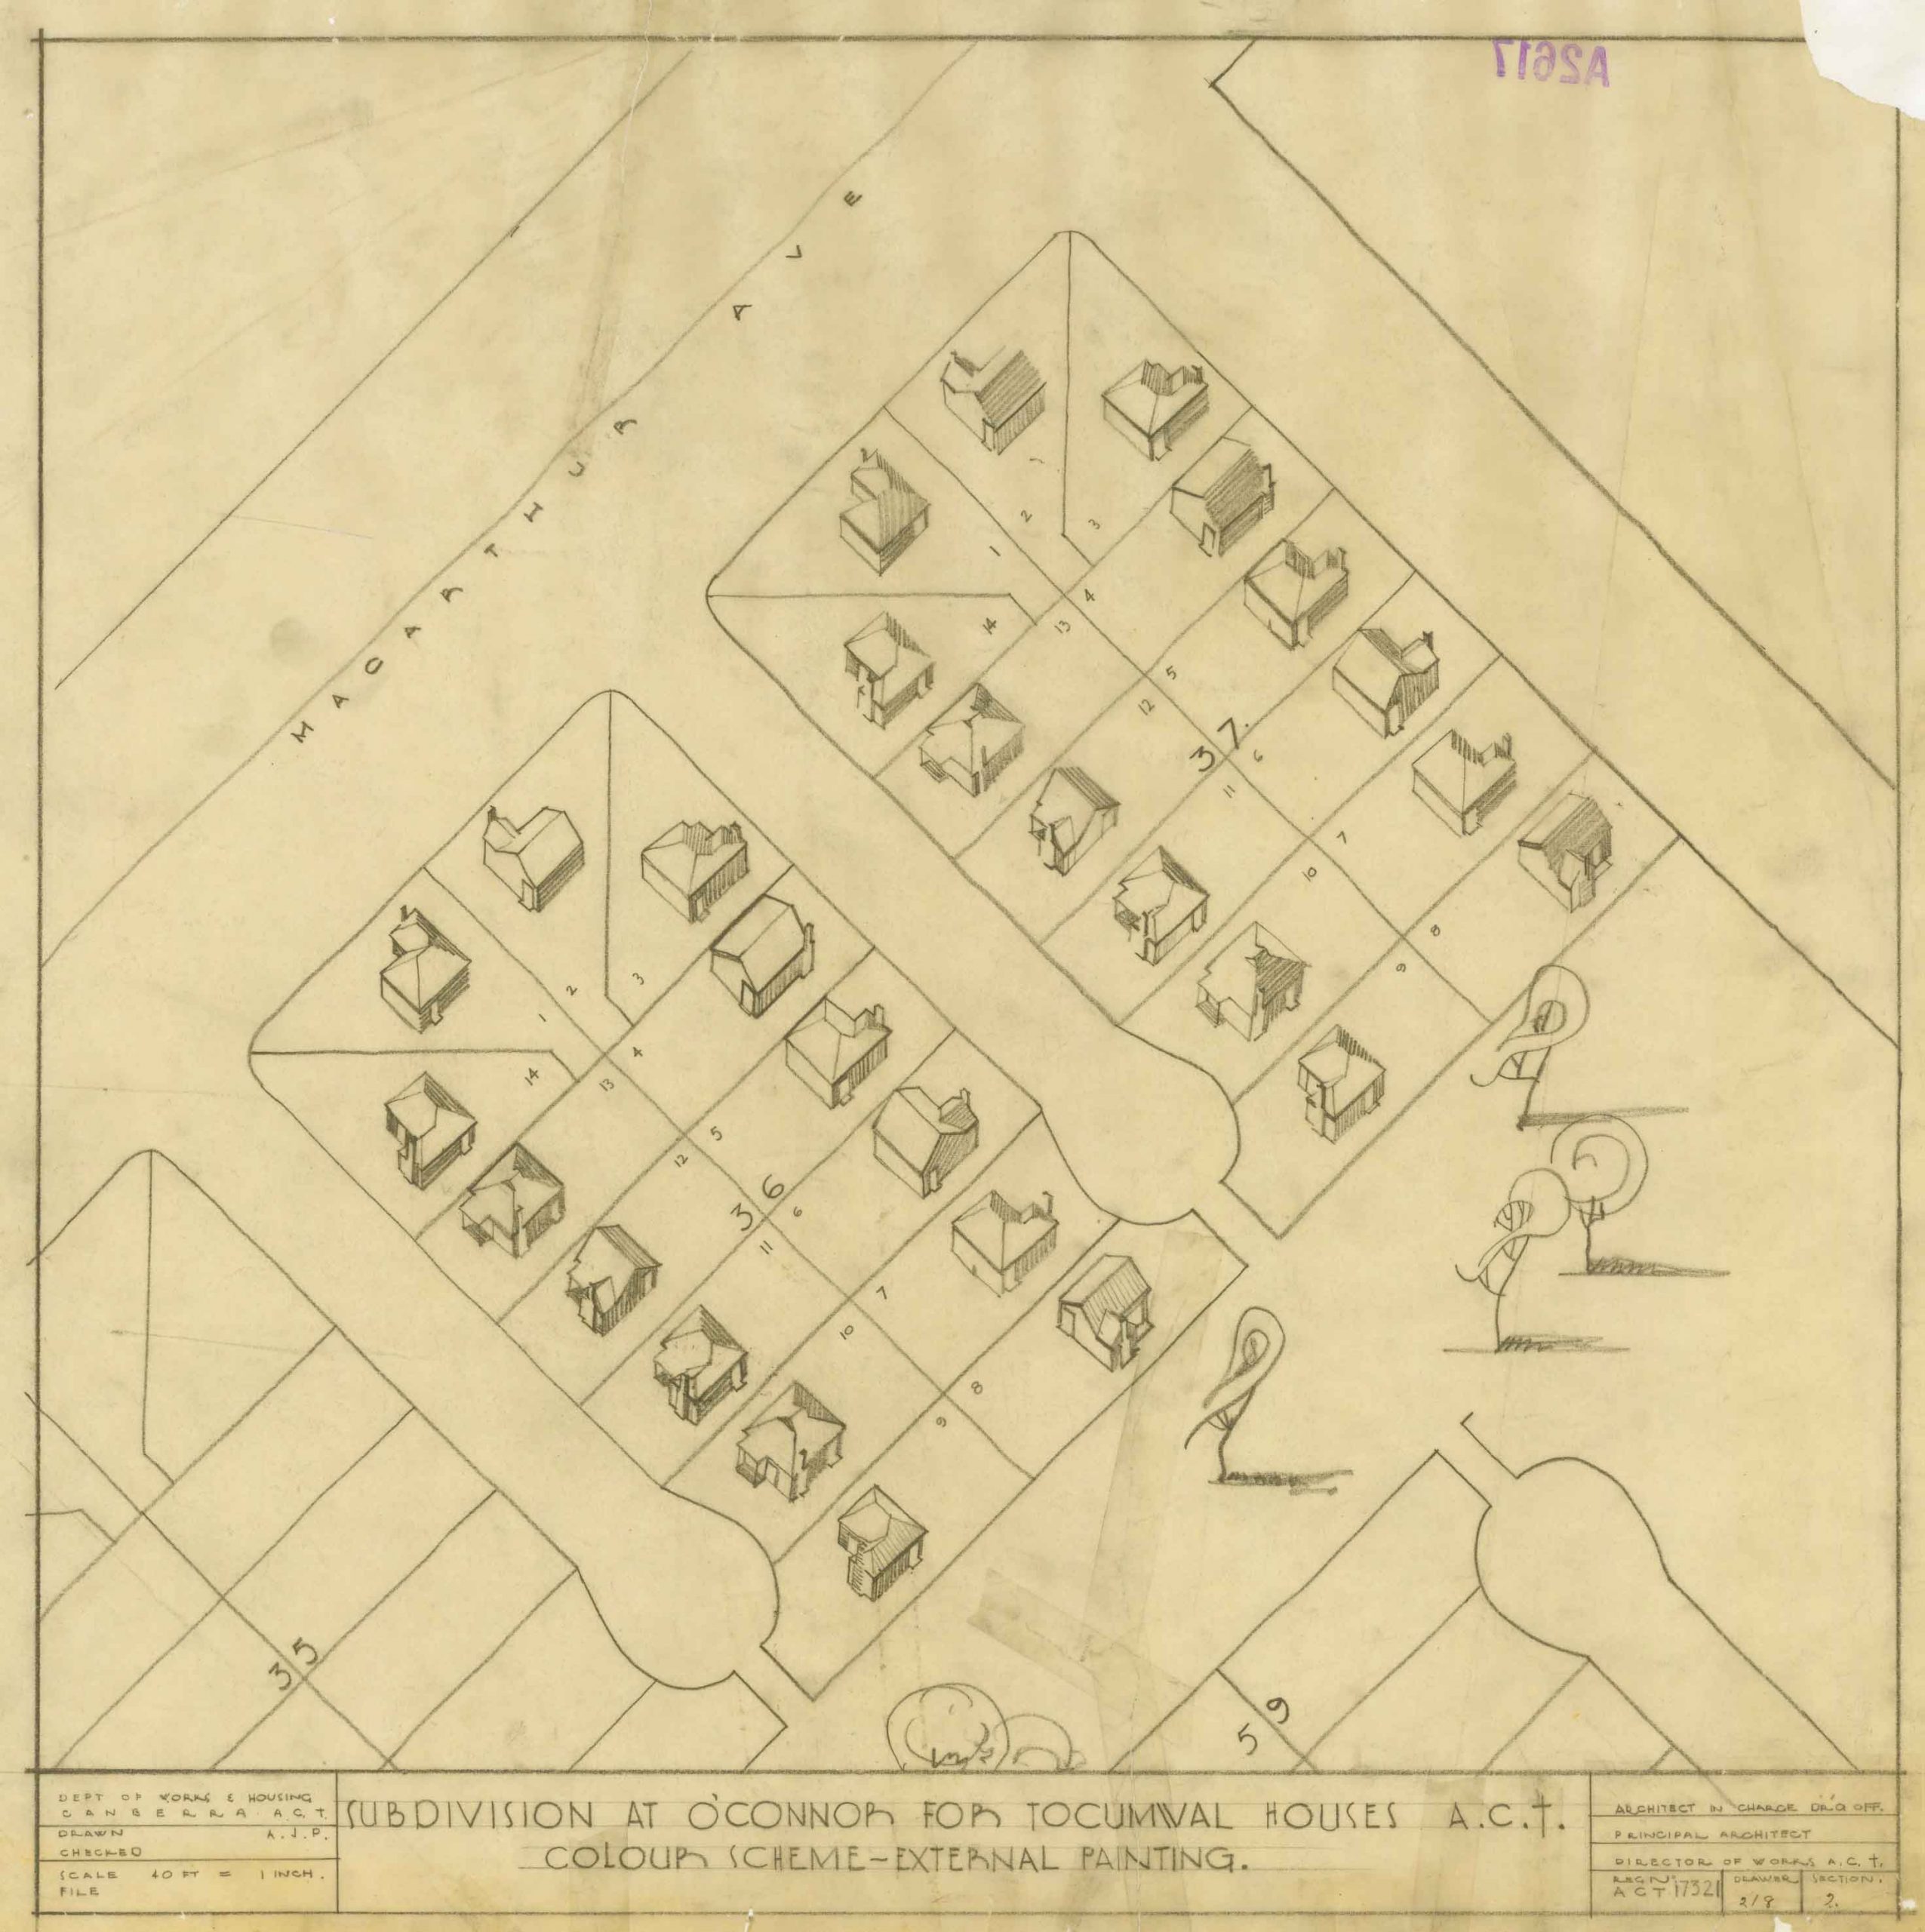 A2617
MACARTHUR AVE
1
2
3
4
5
6
7
8
9
10
11
12
13
14
37.
1
2
3
4
5
6
7
8
9
10
11
12
13
14
36
35
59
DEPT OF WORKS & HOUSING
CANBERRA A.C.T.
DRAWN A.J.P.
CHECKED
SCALE 40 FT = 1 INCH.
FILE
SUBDIVISION AT O'CONNOR FOR TOCUMWAL HOUSES A.C.T.
COLOUR SCHEME-EXTERNAL PAINTING.
ARCHITECT IN CHARGE DR'G OFF.
PRINCIPAL ARCHITECT
DIRECTOR OF WORKS A.C.T.
REGN. DRAWER SECTION.
ACT 17321 2/8 2.